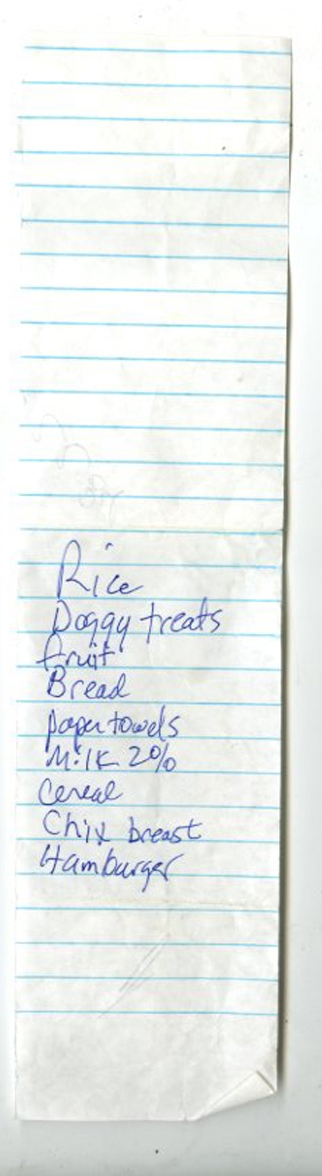 Rice
Doggy treats
fruit
Bread
paper towels
Milk 2%
Cereal
Chix breast
Hamburger